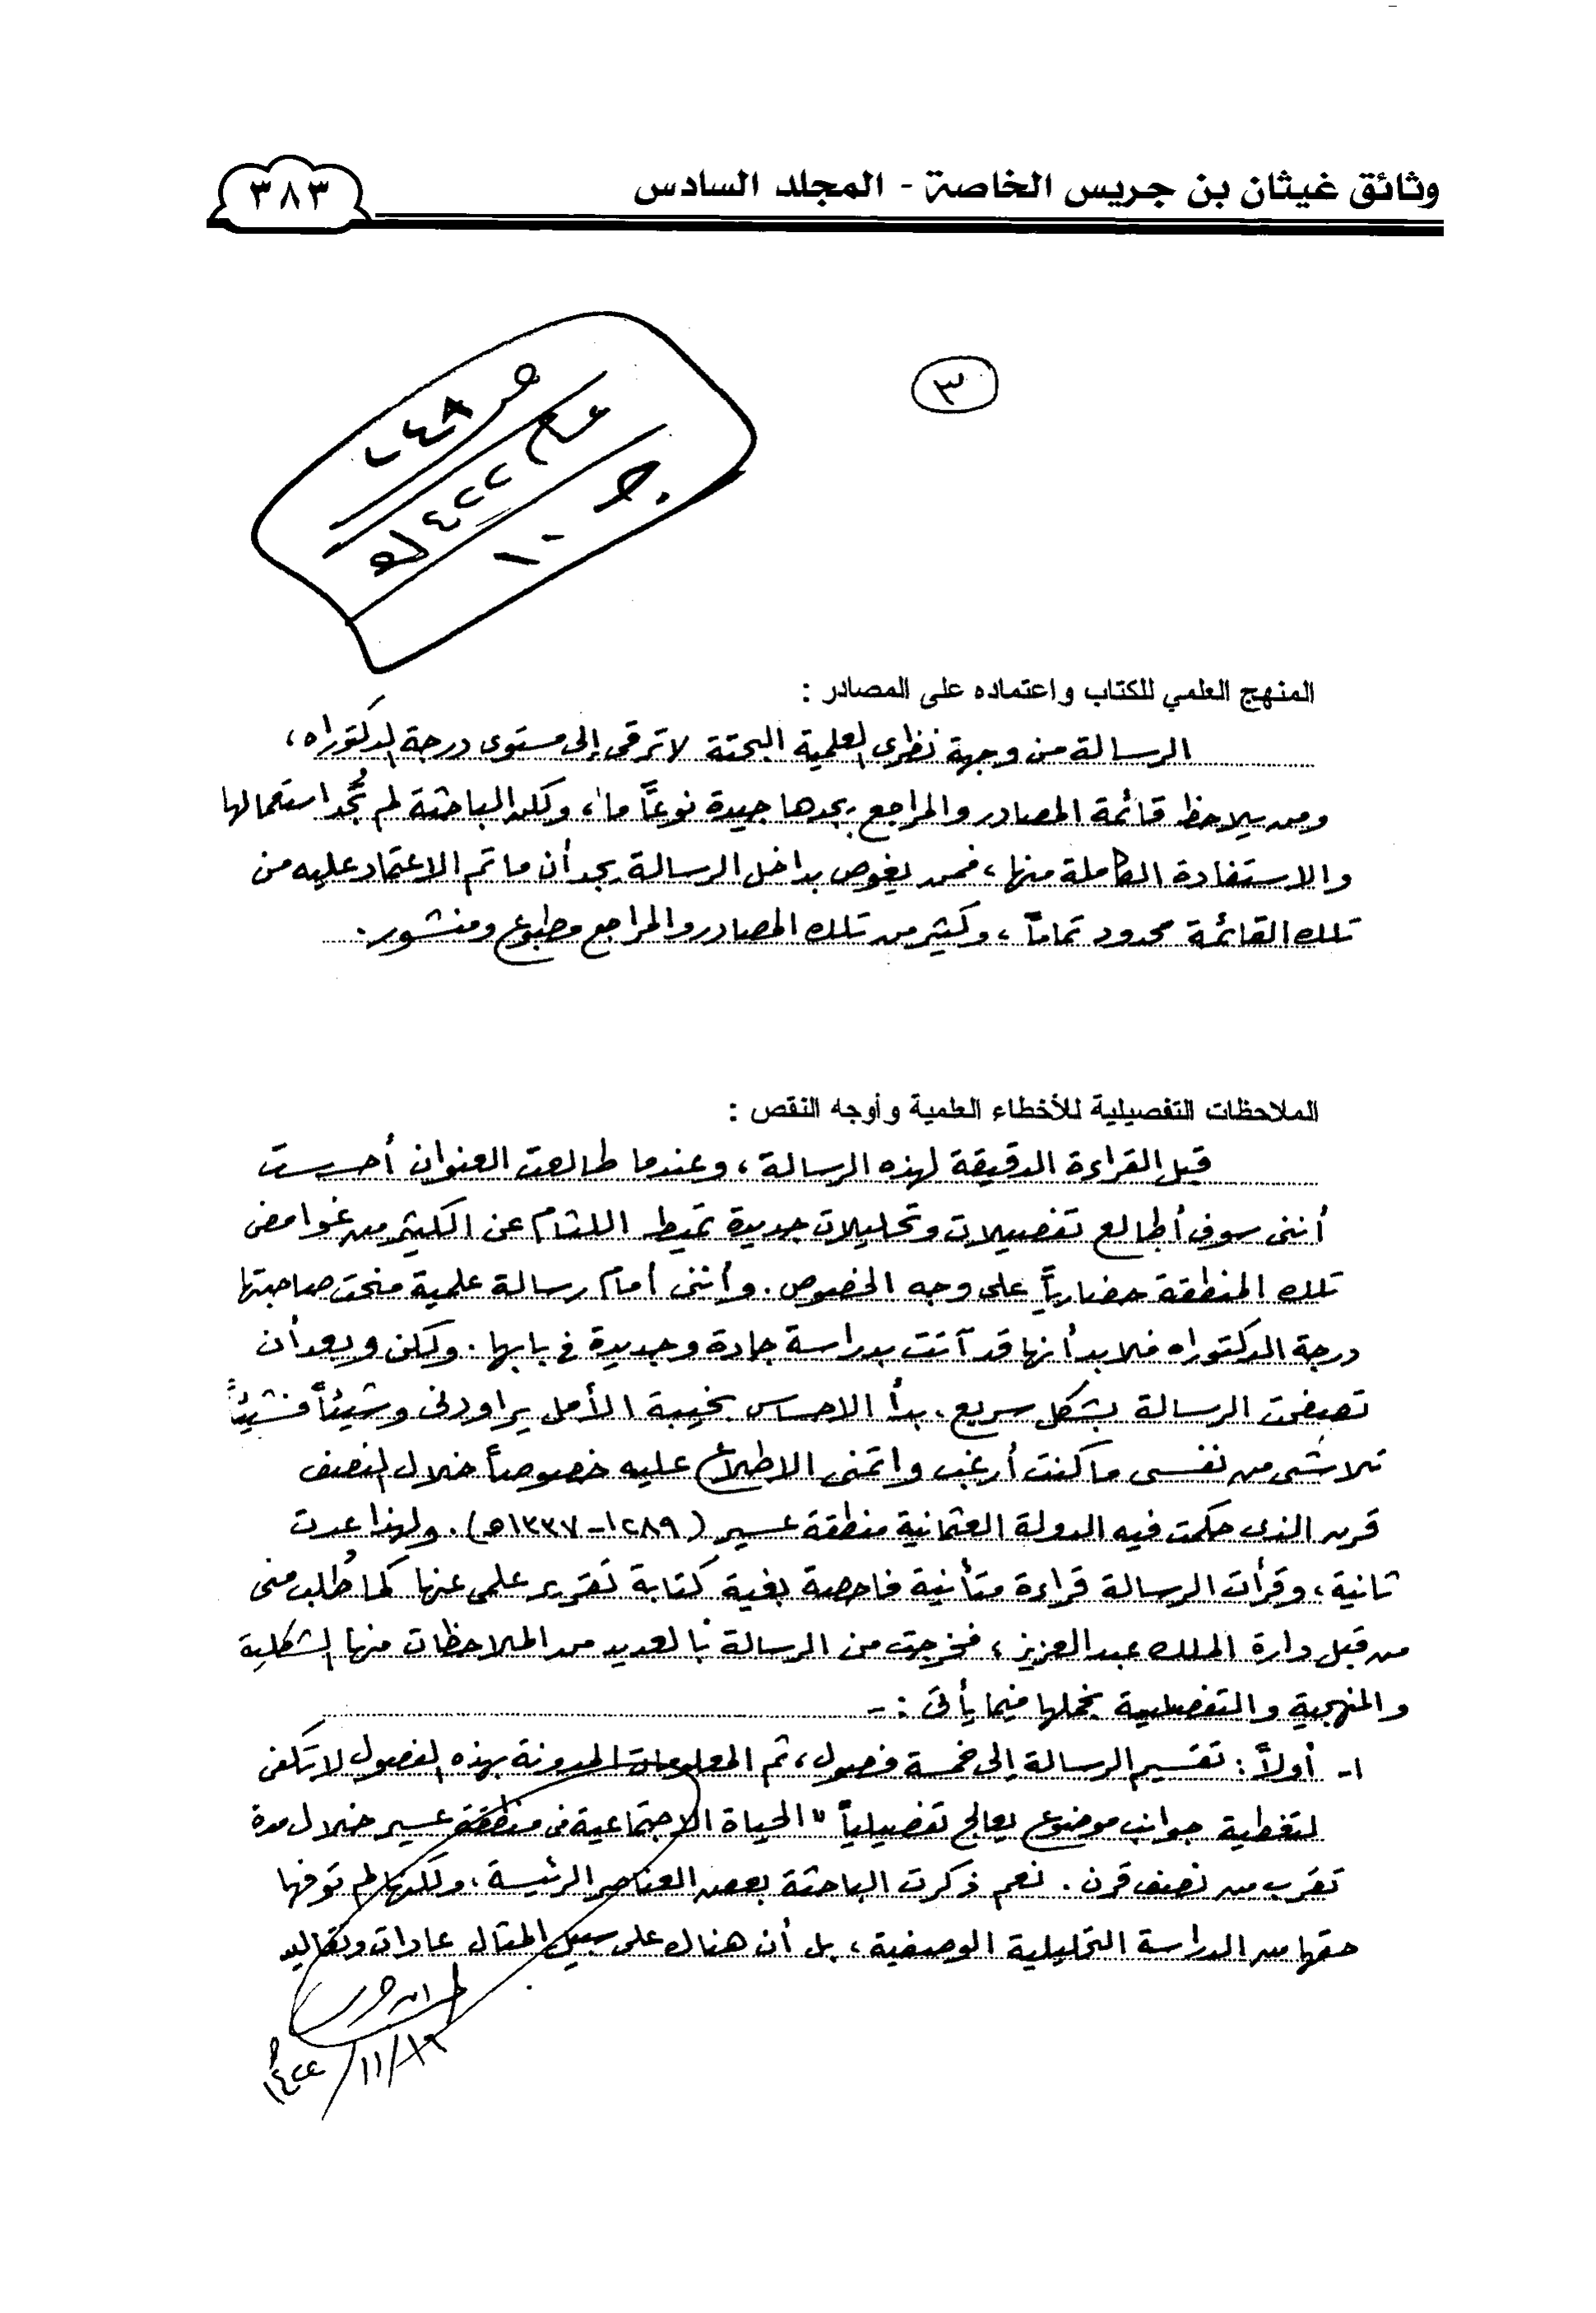 وثائق غيثان بن جريس الخاصة - المجلد السادس
٣٨٣
٣
المنهج العلمي للكتاب واعتماده على المصادر :
الرسالة من وجهة نظري العلمية البحتة لا ترقى إلى مستوى درجة الدكتوراه ،
ومن يلاحظ قائمة المصادر والمراجع يجدها جيدة نوعاً ما ، ولكن الباحثة لم تُجد استعمالها
والاستفادة الكاملة منها ، فمن يغوص بداخل الرسالة يجد أن ما تم الاعتماد عليه من
تلك القائمة محدود تماماً ، وكثير من تلك المصادر والمراجع مطبوع ومنشور .
الملاحظات التفصيلية للأخطاء العلمية وأوجه النقص :
قبل القراءة الدقيقة لهذه الرسالة ، وعندما طالعت العنوان أحسست
أنني سوف أطالع تفصيلات وتحليلات جديدة تميط اللثام عن الكثير من غوامض
تلك المنطقة حضارياً على وجه الخصوص . وأنني أمام رسالة علمية منحت صاحبتها
درجة الدكتوراه فلابد أنها قد آتت بدراسة جادة وجديدة في بابها . ولكن وبعد أن
تصفحت الرسالة بشكل سريع . بدأ الاحساس بخيبة الأمل يراودني وشيئاً فشيئاً
تلاشى من نفسي ما كنت أرغب واتمنى الاطلاع عليه خصوصاً خلال النصف
قرن الذي حكمت فيه الدولة العثمانية منطقة عسير ( ١٢٨٩ - ١٣٣٧هـ ) . ولهذا عدت
ثانية ، وقرأت الرسالة قراءة متأنية فاحصة بغية كتابة تقرير علمي عنها كما طُلب مني
من قبل دارة الملك عبدالعزيز ، فخرجت من الرسالة بالعديد من الملاحظات منها الشكلية
والمنهجية والتفصيلية نجملها فيما يأتي : -
١- أولاً : تقسيم الرسالة إلى خمسة فصول ، ثم المعلومات المدونة بهذه الفصول لا تكفي
لتغطية جوانب موضوع يعالج تفصيلياً " الحياة الاجتماعية في منطقة عسير خلال مدة
تقرب من نصف قرن . نعم ذكرت الباحثة بعض العناصر الرئيسة ، ولكنها لم توفها
حقها من الدراسة التحليلية الوصفية ، بل أن هناك على سبيل المثال عادات وتقاليد